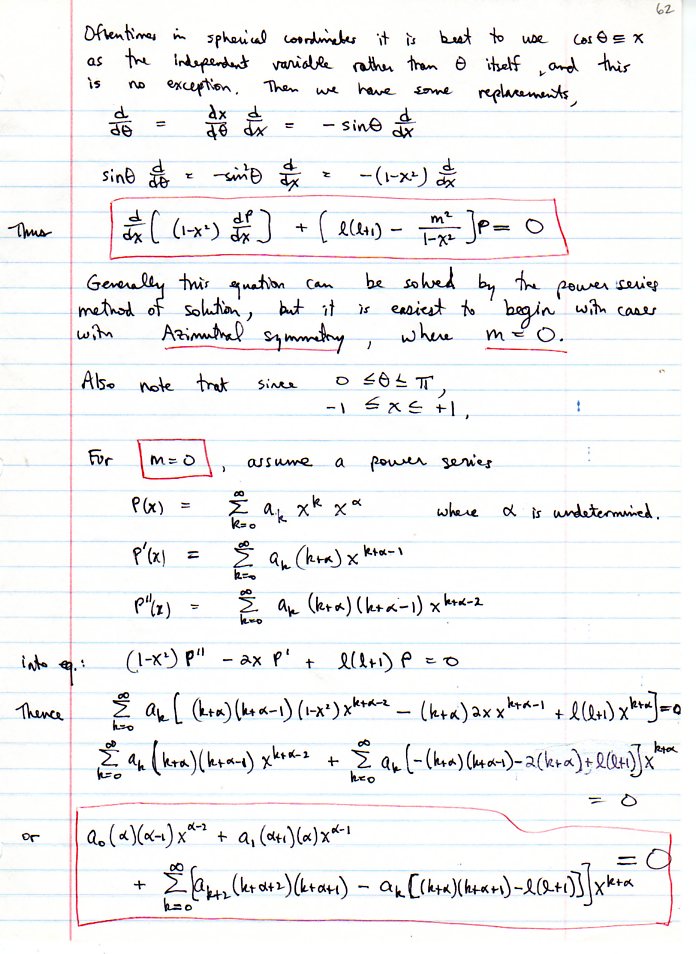 62
Oftentimes in spherical coordinates it is best to use cos θ ≡ x
as the independent variable rather than θ itself, and this
is no exception. Then we have some replacements,
d/dθ = dx/dθ d/dx = - sinθ d/dx
sinθ d/dθ = -sin²θ d/dx = -(1-x²) d/dx
Thus d/dx [ (1-x²) dP/dx ] + [ l(l+1) - m²/(1-x²) ] P = 0
Generally this equation can be solved by the power series
method of solution, but it is easiest to begin with cases
with Azimuthal symmetry, where m = 0.
Also note that since 0 ≤ θ ≤ π,
-1 ≤ x ≤ +1,
For m=0, assume a power series
P(x) = ∑_{k=0}^{∞} a_k x^k x^α where α is undetermined.
P'(x) = ∑_{k=0}^{∞} a_k (k+α) x^{k+α-1}
P''(x) = ∑_{k=0}^{∞} a_k (k+α)(k+α-1) x^{k+α-2}
into eq.: (1-x²) P'' - 2x P' + l(l+1) P = 0
Thence ∑_{k=0}^{∞} a_k [ (k+α)(k+α-1)(1-x²) x^{k+α-2} - (k+α) 2x x^{k+α-1} + l(l+1) x^{k+α} ] = 0
∑_{k=0}^{∞} a_k (k+α)(k+α-1) x^{k+α-2} + ∑_{k=0}^{∞} a_k [ -(k+α)(k+α-1) - 2(k+α) + l(l+1) ] x^{k+α}
= 0
or a_0 (α)(α-1) x^{α-2} + a_1 (α+1)(α) x^{α-1}
+ ∑_{k=0}^{∞} [ a_{k+2} (k+α+2)(k+α+1) - a_k [(k+α)(k+α+1) - l(l+1)] ] x^{k+α} = 0